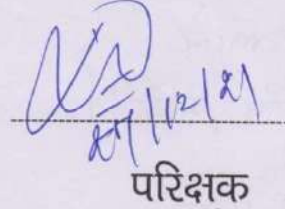 27/12/21
परिक्षक